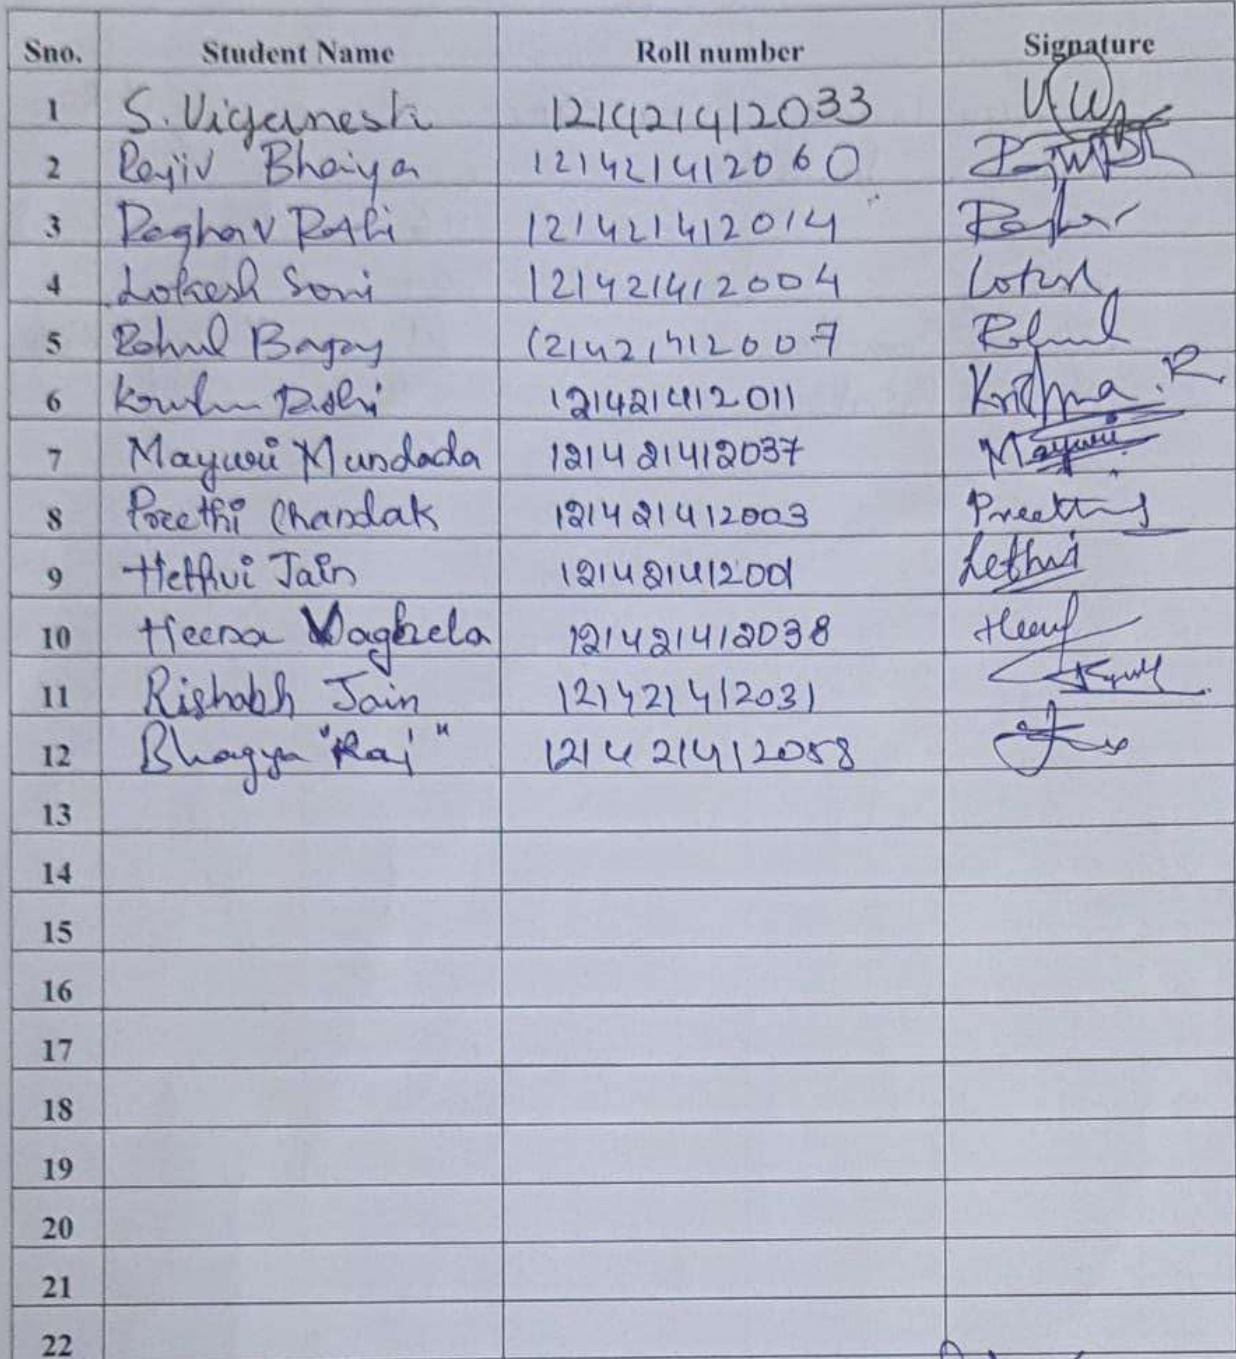 Sno. Student Name Roll number Signature
1 S. Viganesh 121421412033
2 Rajiv Bhaiya 121421412060
3 Raghav Rathi 121421412014
4 Lokesh Soni 121421412004 Lokesh
5 Rahul Bagay 121421412007 Rahul
6 Rathi 121421412011 Krishna .R
7 Mayuri Mundada 121421412037 Mayuri
8 Preethi Chandak 121421412003 Preethi
9 Hethvi Jain 121421412001 Hethvi
10 Heena Vaghela 121421412038
11 Rishabh Jain 121421412031
12 Bhagya "Raj" 121421412058
13
14
15
16
17
18
19
20
21
22